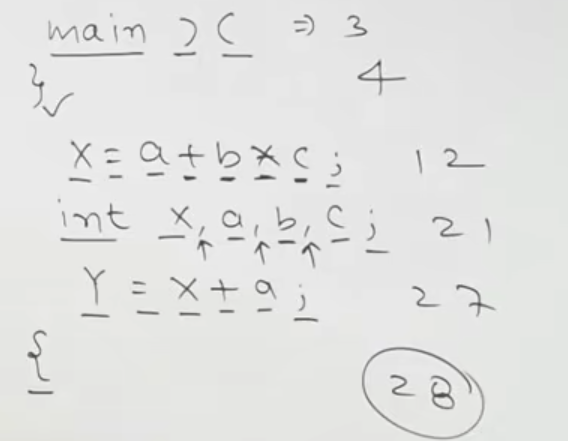 main ) ( ⇒ 3
} ✓ 4
x = a + b * c ; 12
int x, a, b, c ; 21
Y = x + a ; 27
{
28